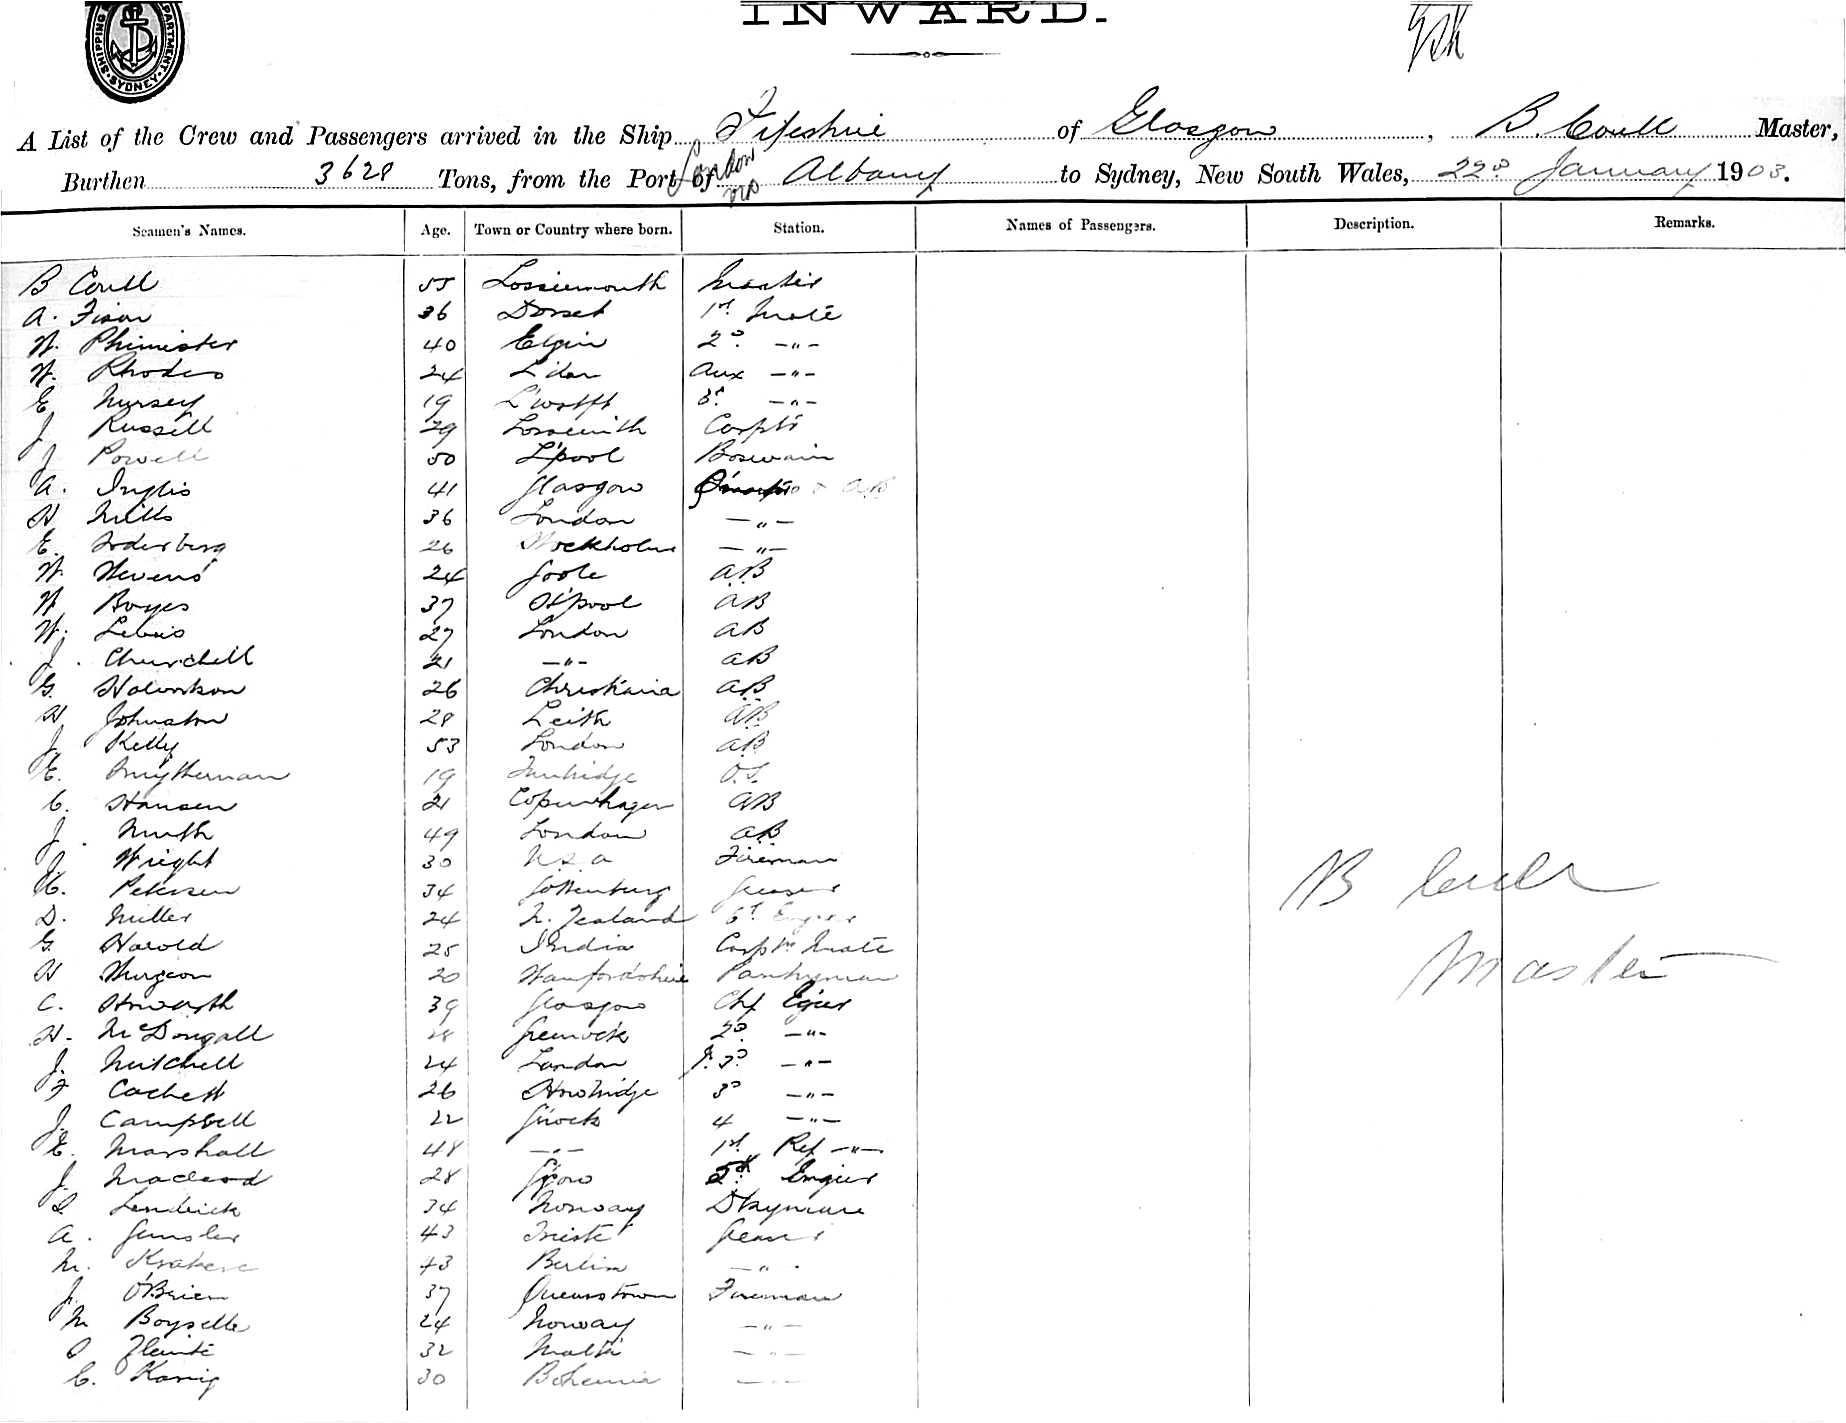 INWARD.
SHIPPING DEPARTMENT. SYDNEY.
A List of the Crew and Passengers arrived in the Ship Fifeshire of Glasgow, B. Coull Master,
Burthen 3628 Tons, from the Port of London Albany to Sydney, New South Wales, 22d January 1903.
Seamen's Names. Age. Town or Country where born. Station. Names of Passengers. Description. Remarks.
B Coull 55 Lossiemouth Master
A. Fison 36 Dorset 1st Mate
W. Phimister 40 Elgin 2d —"—
W. Rhodes 24 L'don Aux —"—
E Nursey 19 L'wstft 3d —"—
J Russell 29 Carptr
J Powell 50 L'pool Boswain
A. Inglis 41 Glasgow AB
H Mills 36 London —"—
E. Soderberg 26 Stockholm —"—
W Stevens 24 Goole AB
W Boyes 37 H'pool AB
W. Lewis 27 London AB
J. Churchill 21 —"— AB
G. Halvorson 26 Christiania AB
H Johnston 28 Leith AB
J. Kelly 53 London AB
E. 19 Tunbridge O.S.
C. Hansen 21 Copenhagen AB
J. Smith 49 London AB
J. Wright 30 U.S.A Fireman
C. Petersen 34 Gottenburg Greaser
D. Miller 24 N. Zealand 5th Engier
G. Harold 25 India Carptrs Mate
H Sturgeon 20 Pantryman
C. Howarth 39 Glasgow Chf Egier
H. McDougall 28 Greenock 2d —"—
J. Mitchell 24 London —"—
F Cachett 26 3d —"—
J. Campbell 22 G'nock 4 —"—
E. Marshall 48 —"— 1st Ref —"—
J. Macleod 28 G'gow 2d Engier
34 Norway Dkyman
A. Gunsler 43 Trieste Greaser
M. 43 Berlin —"—
J. O'Brien 37 Queenstown Fireman
M Boyselle 24 Norway —"—
32 Malta —"—
C. Konig 30 Bohemia —"—
B Coull
Master